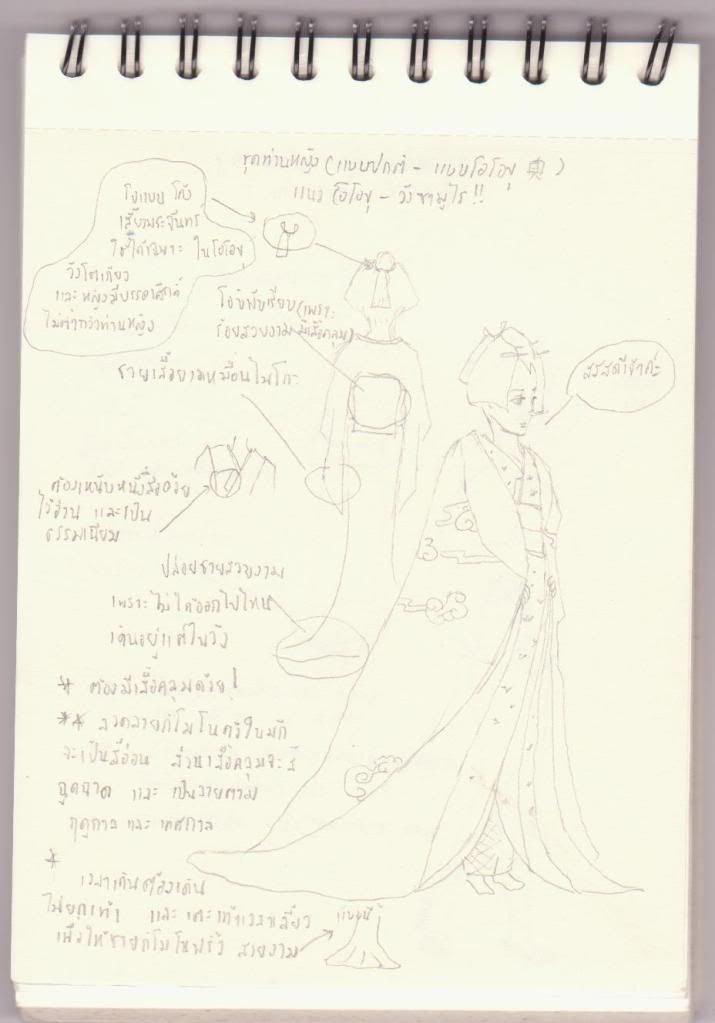 ชุดท่านหญิง (แบบปกติ - แบบโอโอขุ 奥)
แนว โอโอขุ - วังซามูไร!!
โบแบบ โค้ง
เสี้ยวพระจันทร์
ใช้ได้เฉพาะ ในโอโอขุ
วังโตเกียว
และ หญิงมีบรรดาศักดิ์
ไม่ต่ำกว่าท่านหญิง
โอบิพับเรียบ (เพราะ
ร้อยสวยงาม มีเสื้อคลุม)
ชายเสื้อยาวเหมือนไมโกะ
สวัสดีเจ้าค่ะ
ต้องเหน็บหนังสือด้วย
ไว้อ่าน และเป็น
ธรรมเนียม
ปล่อยชายสวยงาม
เพราะไม่ได้ออกไปไหน
เดินอยู่แต่ในวัง
* ต้องมีเสื้อคลุมด้วย!
** ลวดลายกิโมโนตัวในมัก
จะเป็นสีอ่อน ส่วนเสื้อคลุมจะสี
ฉูดฉาด และ เป็นลายตาม
ฤดูกาล และ เทศกาล
*
เวลาเดินต้องเดิน
ไม่ยกเท้า และ เตะเท้าเวลาเลี้ยว
เพื่อให้ชายกิโมโนพริ้ว สวยงาม
แบบนี้